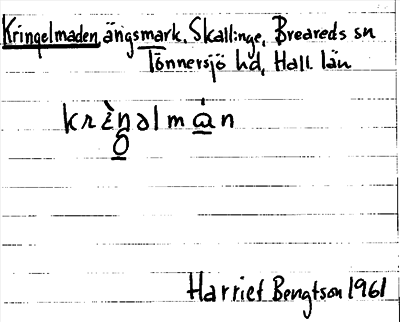 Kringelmaden, ängsmark, Skallinge, Breareds sn
Tönnersjö hd, Hall. län
Harriet Bengtson 1961